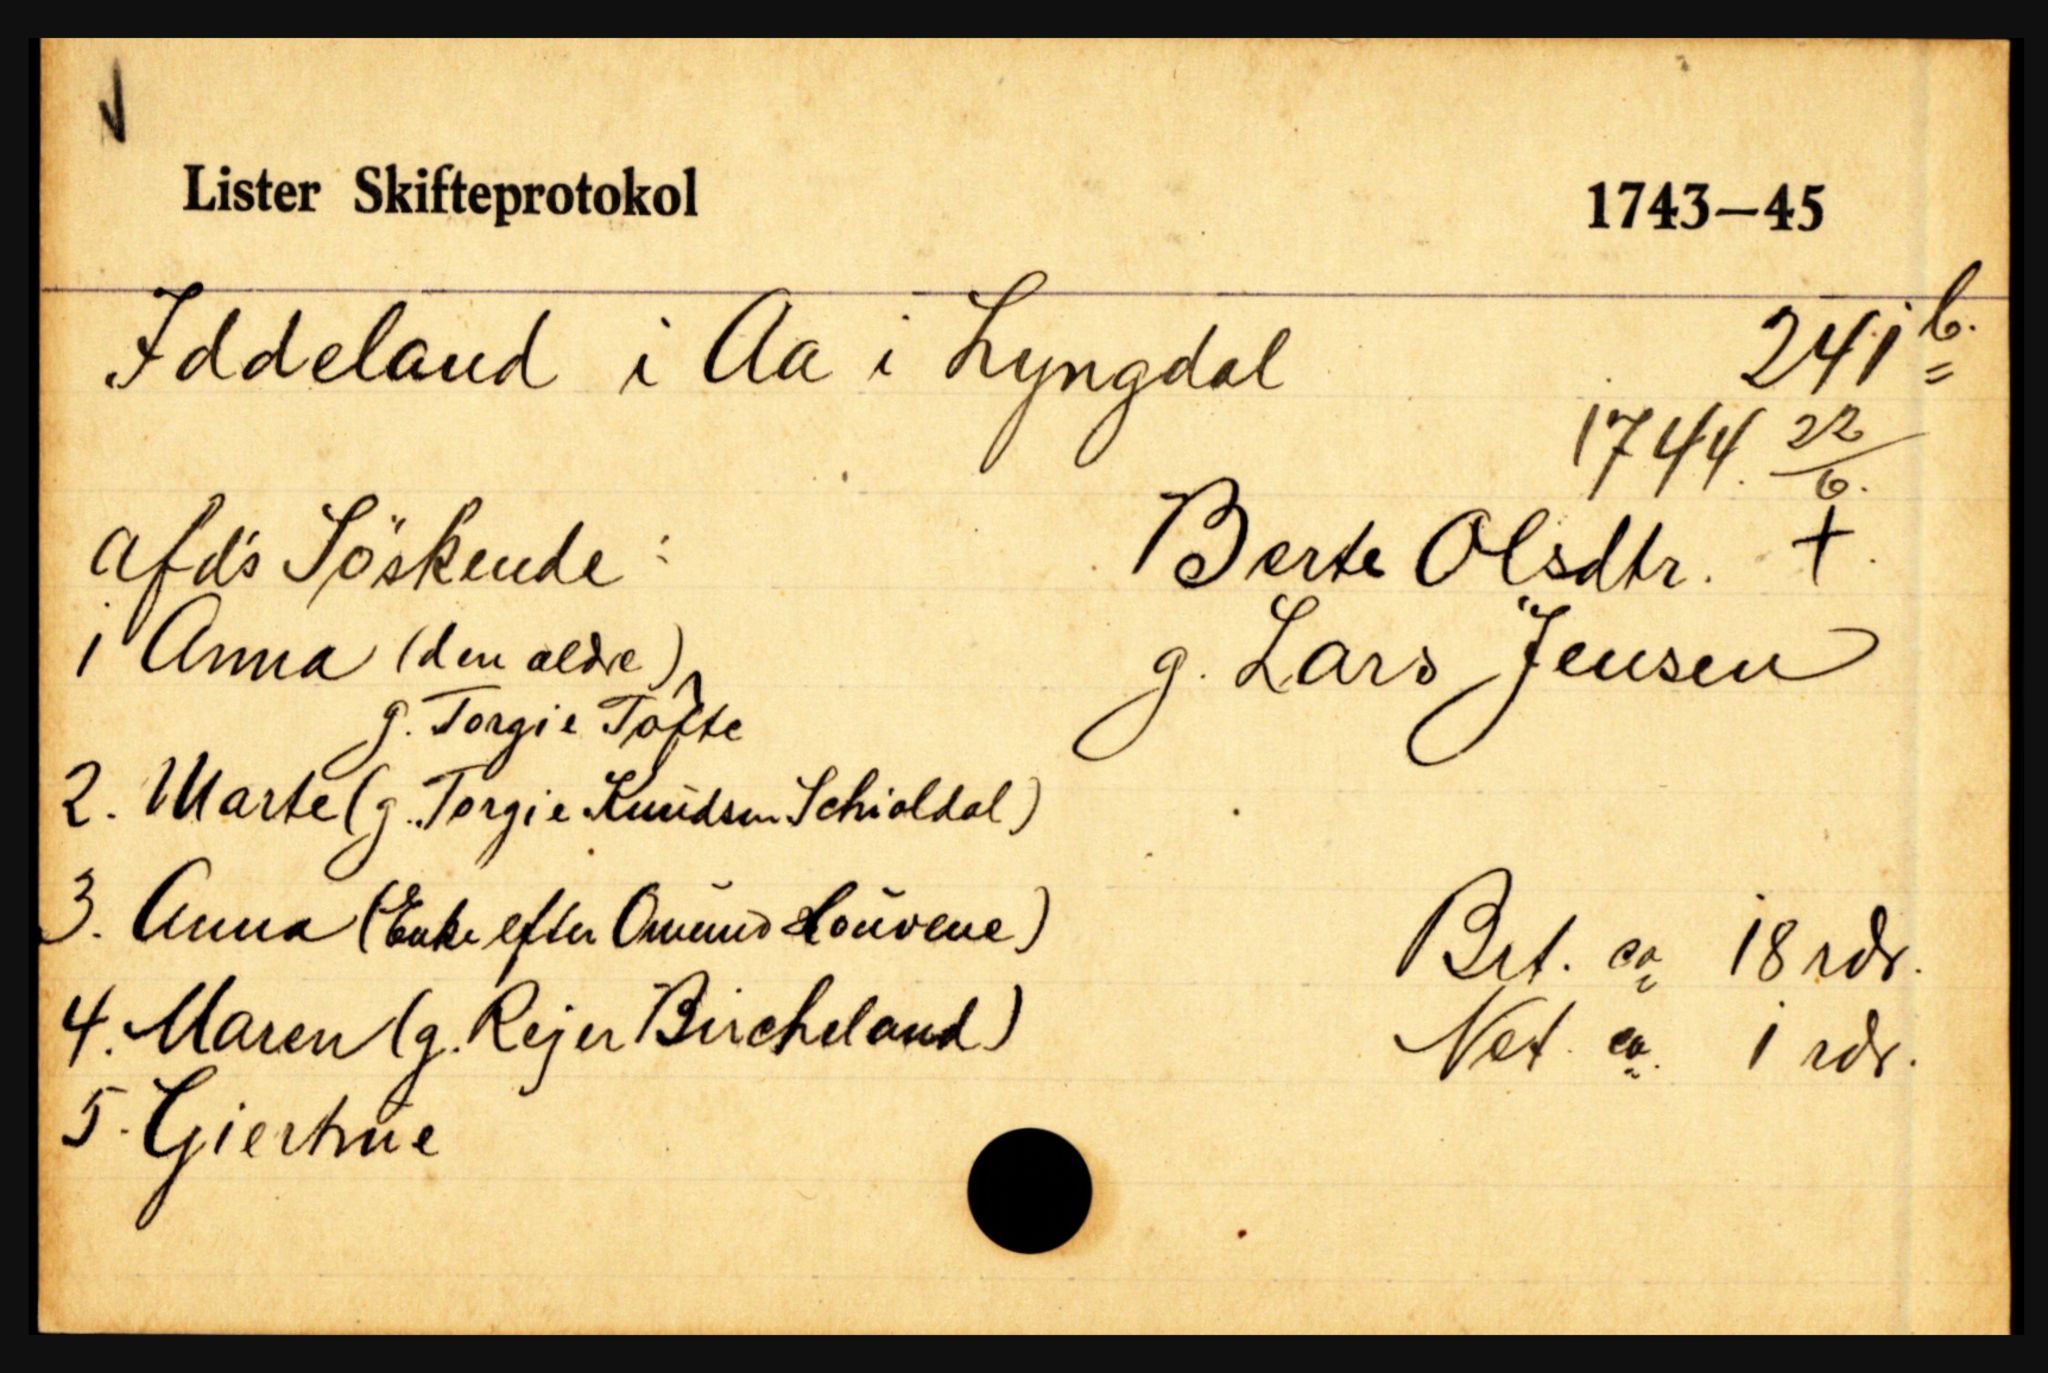 Lister Skifteprotokol 1743–45
Iddeland i Aa i Lyngdal 241 b.
1744. 22/6.
afd's Söskende: Berte Olsdtr. +.
1 Anna (den aldre) g. Lars Jensen
g. Torgie Tofte
2. Marte (g. Torgie Knudsen Schioldal)
3. Anna (Enke efter Omund Houvene)
Brt. ca 18 rdr.
4. Maren (g. Rejer Bircheland)
Net. ca. 1 rdr.
5. Giertrue